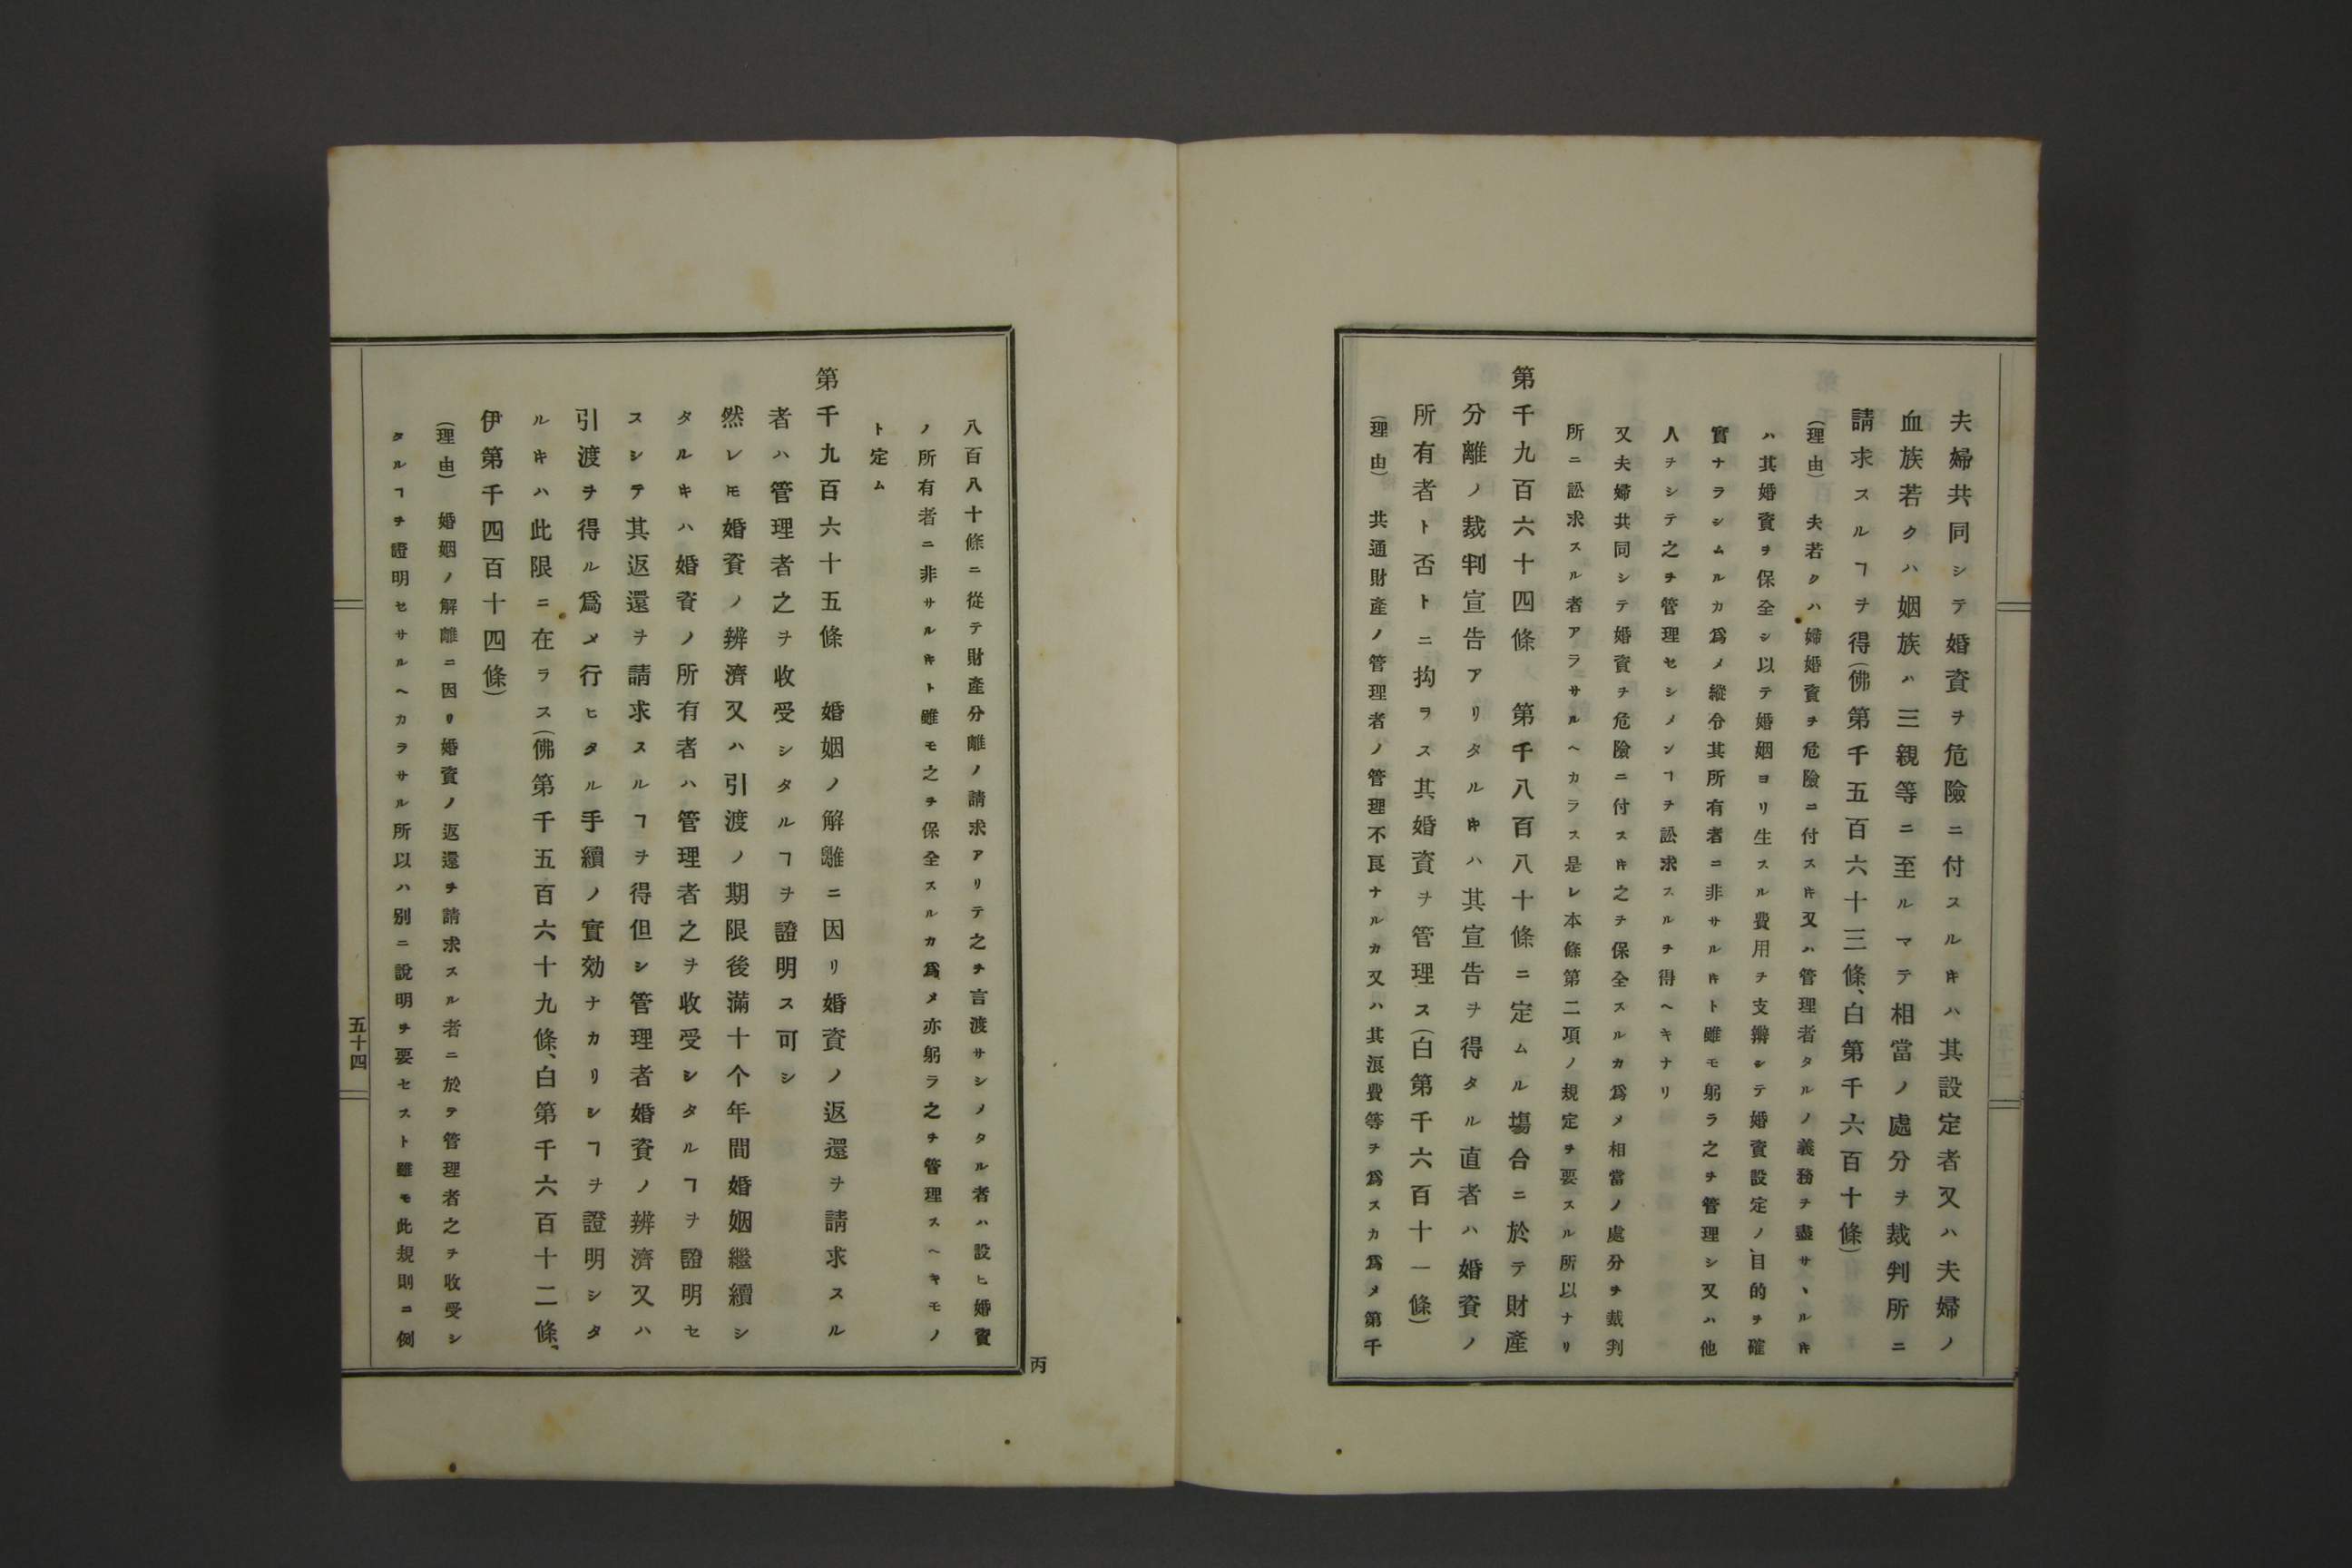 夫婦共同シテ婚資ヲ危險ニ付スルキハ其設定者又ハ夫婦ノ
血族若クハ姻族ハ三親等ニ至ルマテ相當ノ處分ヲ裁判所ニ
請求スルヿヲ得(佛第千五百六十三條、白第千六百十條)
(理由)夫若クハ婦婚資ヲ危險ニ付スキ又ハ管理者タルノ義務ヲ盡サヽルキ
ハ其婚資ヲ保全シ以テ婚姻ヨリ生スル費用ヲ支辨シテ婚資設定ノ目的ヲ確
實ナラシムルカ爲メ縱令其所有者ニ非サルキト雖モ躬ラ之ヲ管理シ又ハ他
人ヲシテ之ヲ管理セシメンヿヲ訟求スルヲ得ヘキナリ
又夫婦共同シテ婚資ヲ危險ニ付スキ之ヲ保全スルカ爲メ相當ノ處分ヲ裁判
所ニ訟求スル者アラサルヘカラス是レ本條第二項ノ規定ヲ要スル所以ナリ
第千九百六十四條 第千八百八十條ニ定ムル塲合ニ於テ財產
分離ノ裁判宣告アリタルキハ其宣告ヲ得タル直者ハ婚資ノ
所有者ト否トニ拘ラス其婚資ヲ管理ス(白第千六百十一條)
(理由)共通財產ノ管理者ノ管理不良ナルカ又ハ其浪費等ヲ爲スカ爲メ第千
八百八十條ニ從テ財產分離ノ請求アリテ之ヲ言渡サシメタル者ハ設ヒ婚資
ノ所有者ニ非サルキト雖モ之ヲ保全スルカ爲メ亦躬ラ之ヲ管理スヘキモノ
ト定ム
第千九百六十五條 婚姻ノ解離ニ因リ婚資ノ返還ヲ請求スル
者ハ管理者之ヲ收受シタルヿヲ證明ス可シ
然レ𪜈婚資ノ辨濟又ハ引渡ノ期限後滿十个年間婚姻繼續シ
タルキハ婚資ノ所有者ハ管理者之ヲ收受シタルヿヲ證明セ
スシテ其返還ヲ請求スルヿヲ得但シ管理者婚資ノ辨濟又ハ
引渡ヲ得ル爲メ行ヒタル手續ノ實効ナカリシヿヲ證明シタ
ルキハ此限ニ在ラス(佛第千五百六十九條、白第千六百十二條、
伊第千四百十四條)
(理由) 婚姻ノ解離ニ因リ婚資ノ返還ヲ請求スル者ニ於テ管理者之ヲ收受シ
タルヿヲ證明セサルヘカラサル所以ハ別ニ說明ヲ要セスト雖モ此規則ニ例
五十四
丙